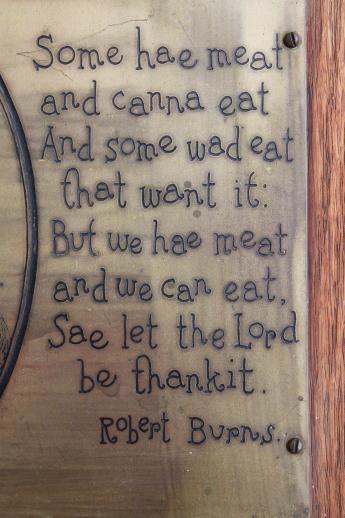 Some hae meat
and canna eat
And some wad eat
that want it:
But we hae meat
and we can eat,
Sae let the Lord
be thankit.
Robert Burns.